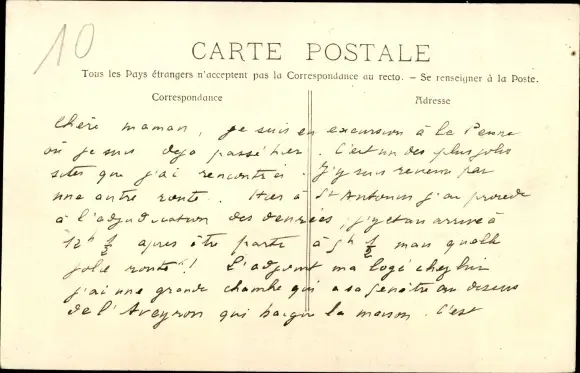 10
CARTE POSTALE
Tous les Pays étrangers n'acceptent pas la Correspondance au recto. – Se renseigner à la Poste.
Correspondance
Adresse
Chère maman, je suis en excursion à la Penne
où je suis deja passé hier. C'est un des plus jolis
sites que j'ai rencontrés. J'y suis revenu par
une autre route. Hier à St Antonin j'ai procédé
à l'adjudication des denrées, j'y étais arrivé à
12h ½ après être parti à 5h ½ mais quelle
jolie route ! L'adjoint m'a logé chez lui
j'ai une grande chambre qui a sa fenêtre au dessus
de l'Aveyron qui baigne la maison. C'est